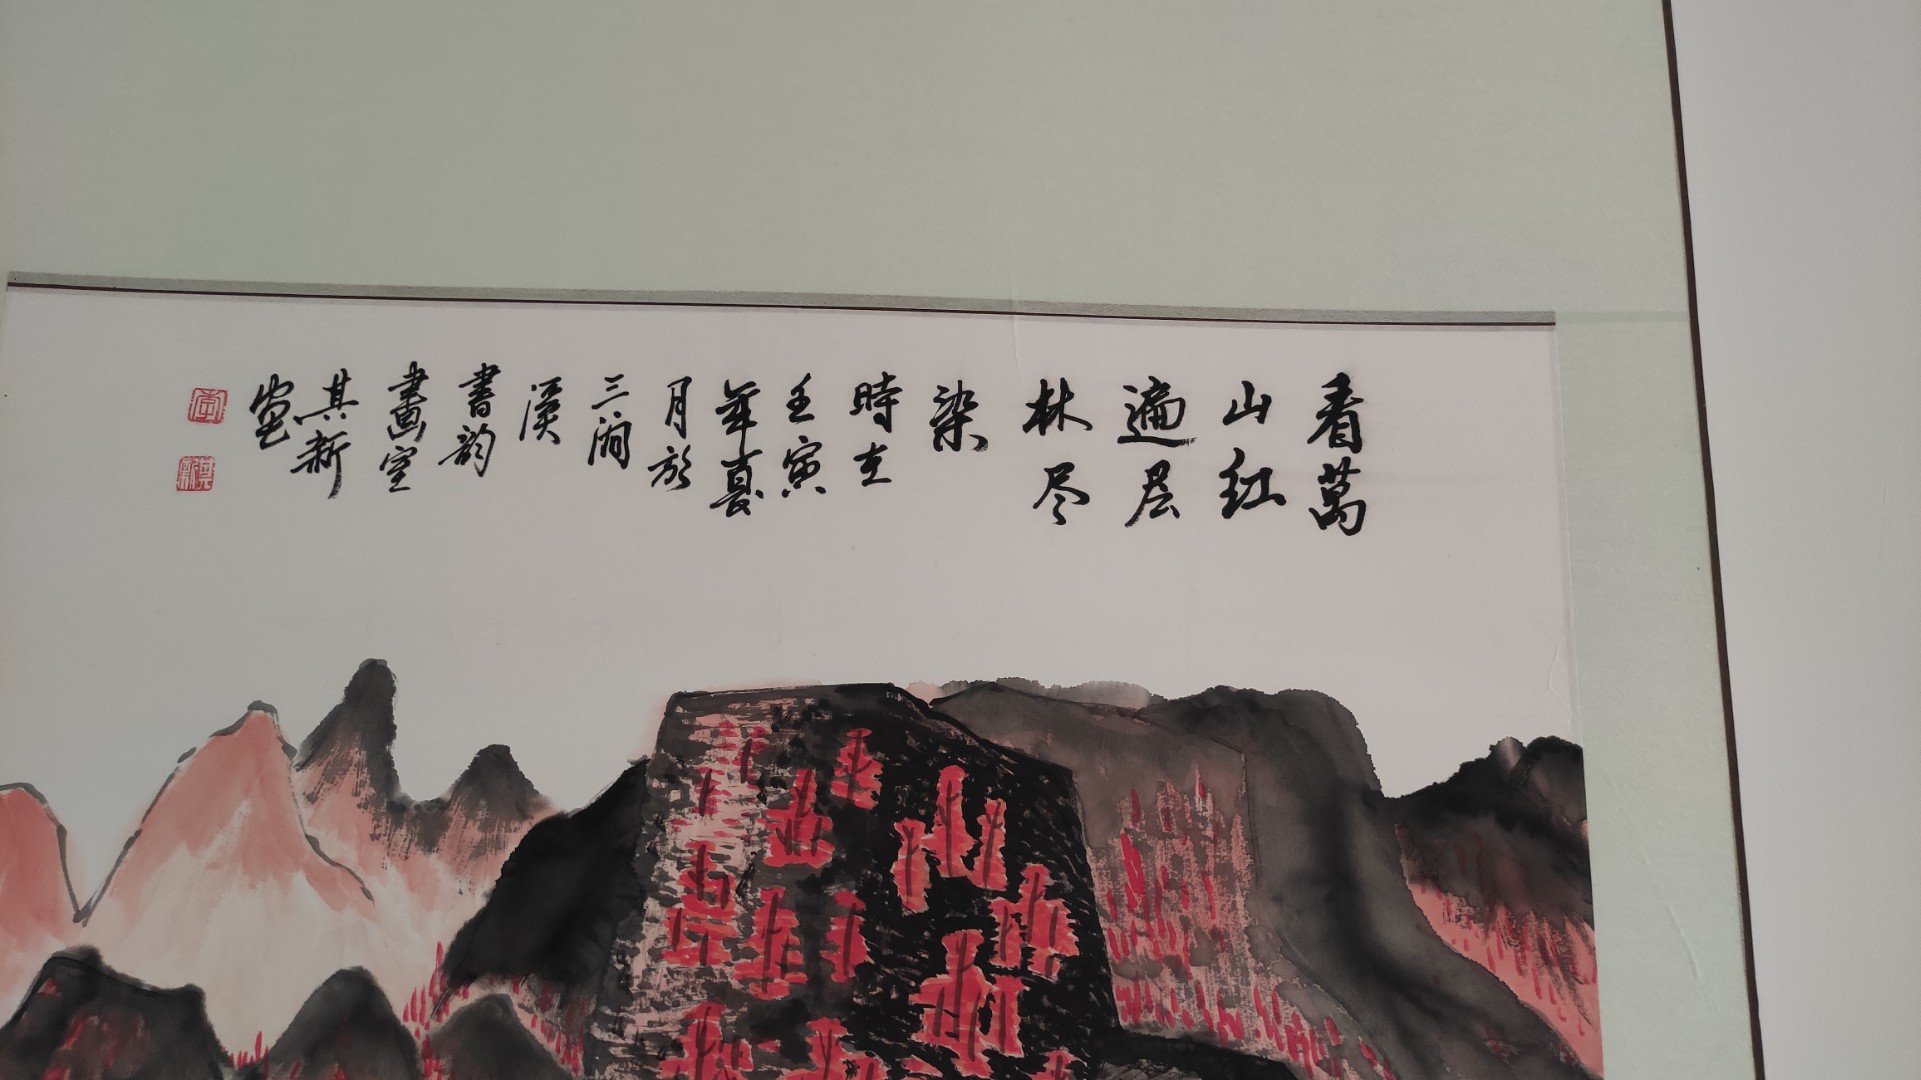 看萬
山红
遍层
林尽
染
時在
壬寅
年夏
月於
三润
漢
書韵
畫室
其新
畫